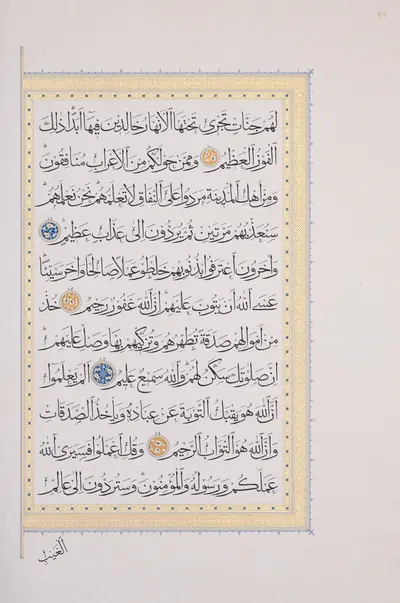 لَهُمْ جَنَّاتٍ تَجْرِي تَحْتَهَا الْأَنْهَارُ خَالِدِينَ فِيهَا أَبَدًا ذَلِكَ
الْفَوْزُ الْعَظِيمُ وَمِمَّنْ حَوْلَكُمْ مِنَ الْأَعْرَابِ مُنَافِقُونَ
وَمِنْ أَهْلِ الْمَدِينَةِ مَرَدُوا عَلَى النِّفَاقِ لَا تَعْلَمُهُمْ نَحْنُ نَعْلَمُهُمْ
سَنُعَذِّبُهُمْ مَرَّتَيْنِ ثُمَّ يُرَدُّونَ إِلَى عَذَابٍ عَظِيمٍ
وَآخَرُونَ اعْتَرَفُوا بِذُنُوبِهِمْ خَلَطُوا عَمَلًا صَالِحًا وَآخَرَ سَيِّئًا
عَسَى اللَّهُ أَنْ يَتُوبَ عَلَيْهِمْ إِنَّ اللَّهَ غَفُورٌ رَحِيمٌ خُذْ
مِنْ أَمْوَالِهِمْ صَدَقَةً تُطَهِّرُهُمْ وَتُزَكِّيهِمْ بِهَا وَصَلِّ عَلَيْهِمْ
إِنَّ صَلَوتَكَ سَكَنٌ لَهُمْ وَاللَّهُ سَمِيعٌ عَلِيمٌ أَلَمْ يَعْلَمُوا
أَنَّ اللَّهَ هُوَ يَقْبَلُ التَّوْبَةَ عَنْ عِبَادِهِ وَيَأْخُذُ الصَّدَقَاتِ
وَأَنَّ اللَّهَ هُوَ التَّوَّابُ الرَّحِيمُ وَقُلِ اعْمَلُوا فَسَيَرَى اللَّهُ
عَمَلَكُمْ وَرَسُولُهُ وَالْمُؤْمِنُونَ وَسَتُرَدُّونَ إِلَى عَالِمِ
الْغَيْبِ